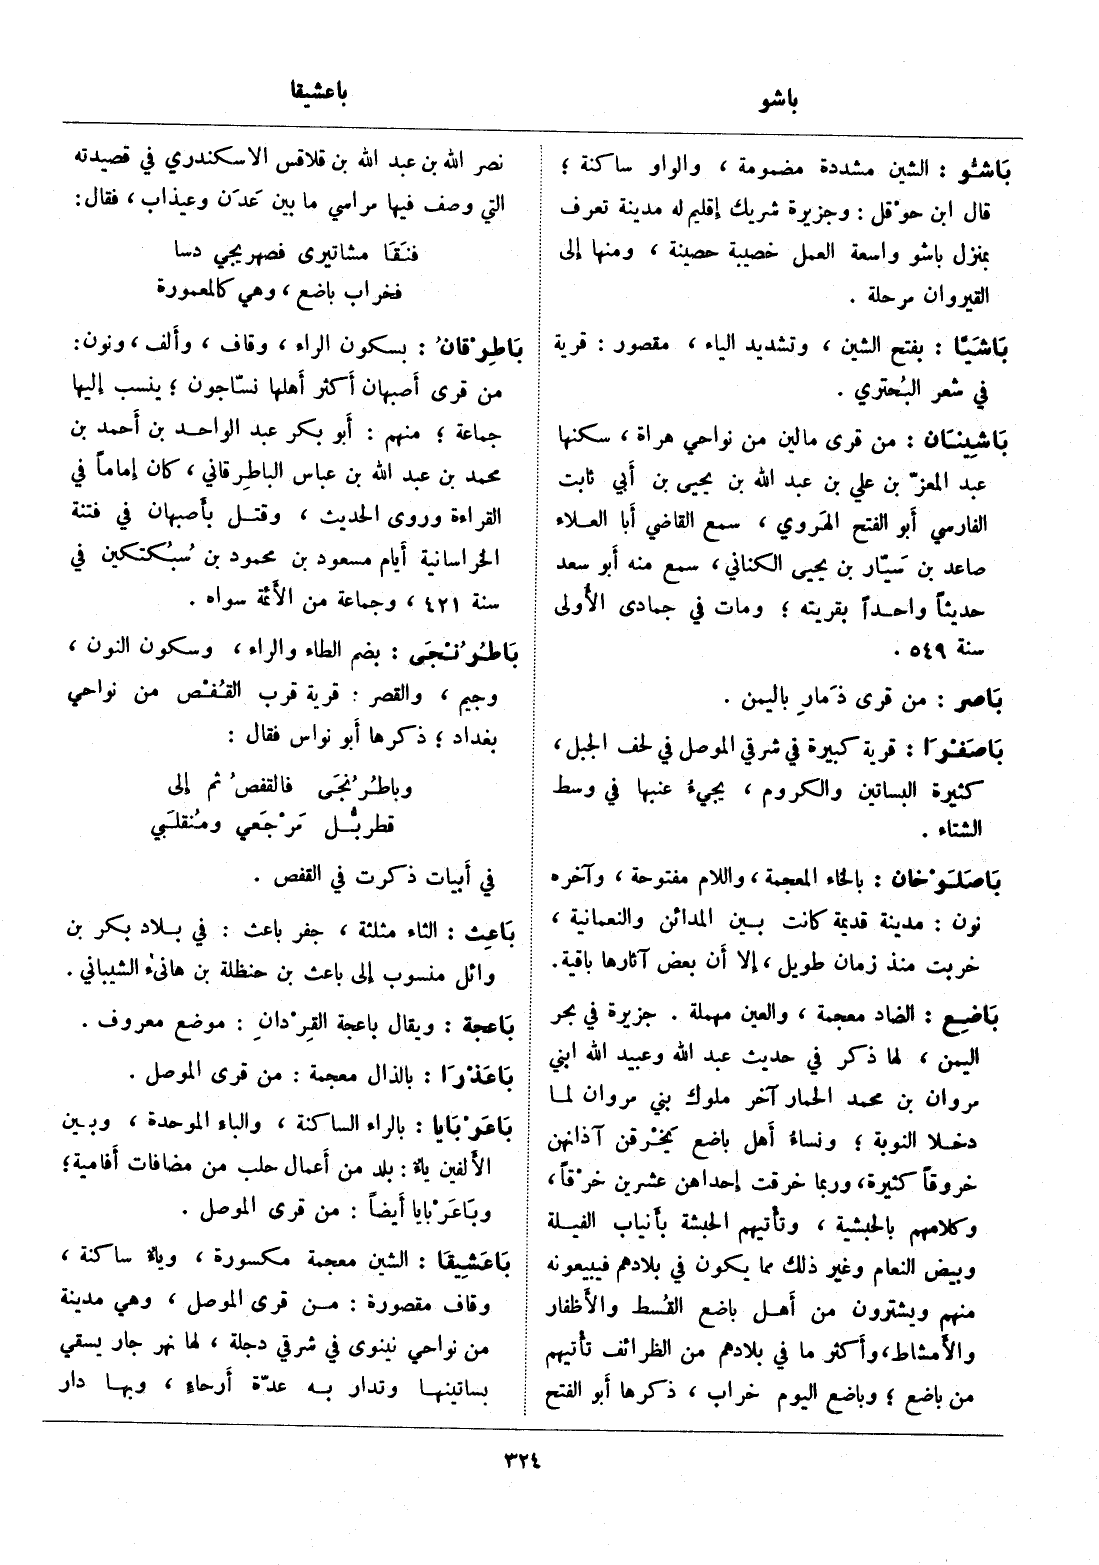 باشو
باعشيقا
بَاشُّو : الشين مشددة مضمومة ، والواو ساكنة ؛
قال ابن حوْقل : وجزيرة شريك إقليم له مدينة تعرف
بمنزل باشو واسعة العمل خصيبة حصينة ، ومنها إلى
القيروان مرحلة .
بَاشَيَّا : بفتح الشين ، وتشديد الياء ، مقصور : قرية
في شعر البُحتري .
بَاشِينَان : من قرى مالين من نواحي هراة ، سكنها
عبد المعزّ بن علي بن عبد الله بن يحيى بن أبي ثابت
الفارسي أبو الفتح الهَروي ، سمع القاضي أبا العلاء
صاعد بن سَيّار بن يحيى الكناني ، سمع منه أبو سعد
حديثاً واحداً بقريته ؛ ومات في جمادى الأُولى
سنة ٥٤٩ .
بَاصر : من قرى ذَمارِ باليمن .
بَاصَفْرَا : قرية كبيرة في شرقي الموصل في لحف الجبل ،
كثيرة البساتين والكروم ، يجيءُ عنبها في وسط
الشتاء .
بَاصَلَوْخان : بالخاء المعجمة ، واللام مفتوحة ، وآخره
نون : مدينة قديمة كانت بين المدائن والنعمانية ،
خربت منذ زمان طويل ، إلا أن بعض آثارها باقية.
بَاضِع : الضاد معجمة ، والعين مهملة . جزيرة في بحر
اليمن ، لها ذكر في حديث عبد الله وعبيد الله ابني
مروان بن محمد الحمار آخر ملوك بني مروان لما
دخلا النوبة ؛ ونساءُ أهل باضع يَخْرقن آذانهن
خروقاً كثيرة، وربما خرقت إحداهن عشرين خرْقاً ،
وكلامهم بالحبشية ، وتأتيهم الحبشة بأنياب الفيلة
وبيض النعام وغير ذلك مما يكون في بلادهم فيبيعونه
منهم ويشترون من أهل باضع القُسط والأظفار
والأمشاط، وأكثر ما في بلادهم من الظرائف تأتيهم
من باضع ؛ وباضع اليوم خراب ، ذكرها أبو الفتح
نصر الله بن عبد الله بن قلاقس الاسكندري في قصيدته
التي وصف فيها مراسي ما بين عَدَن وعيذاب ، فقال:
فنَقَا مشاتيرى فصهريجي دسا
فخراب باضع ، وهي كالمعمورة
بَاطِرْقانُ : بسكون الراء ، وقاف ، وألف ، ونون:
من قرى أصبهان أكثر أهلها نسّاجون ؛ ينسب إليها
جماعة ؛ منهم : أبو بكر عبد الواحد بن أحمد بن
محمد بن عبد الله بن عباس الباطِرقاني ، كان إماماً في
القراءة وروى الحديث ، وقتل بأصبهان في فتنة
الخراسانية أيام مسعود بن محمود بن سُبُكتكين في
سنة ٤٢١ ، وجماعة من الأئمة سواه .
بَاطُرُنْجَى : بضم الطاء والراء ، وسكون النون ،
وجيم ، والقصر : قرية قرب القُفْص من نواحي
بغداد ؛ ذكرها أبو نواس فقال :
وباطُرُنجَى فالقفصُ ثم إلى
قطربُّل مَرْجَعي ومُنقلَبي
في أبيات ذكرت في القفص .
بَاعِث : الثاء مثلثة ، جفر باعث : في بلاد بكر بن
وائل منسوب إلى باعث بن حنظلة بن هانىء الشيباني .
بَاعجة : ويقال باعجة القِرْدانِ : موضع معروف .
بَاعَذْرَا : بالذال معجمة : من قرى الموصل .
بَاعَرْبَايا : بالراء الساكنة ، والباء الموحدة ، وبين
الألفين ياءٌ : بلد من أعمال حلب من مضافات أفامية ؛
وبَاعَرْبايا أيضاً : من قرى الموصل .
بَاعَشِيقَا : الشين معجمة مكسورة ، وياءٌ ساكنة ،
وقاف مقصورة : من قرى الموصل ، وهي مدينة
من نواحي نينوى في شرقي دجلة ، لها نهر جار يسقي
بساتينها وتدار به عدّة أرحاءٍ ، وبها دار
٣٢٤